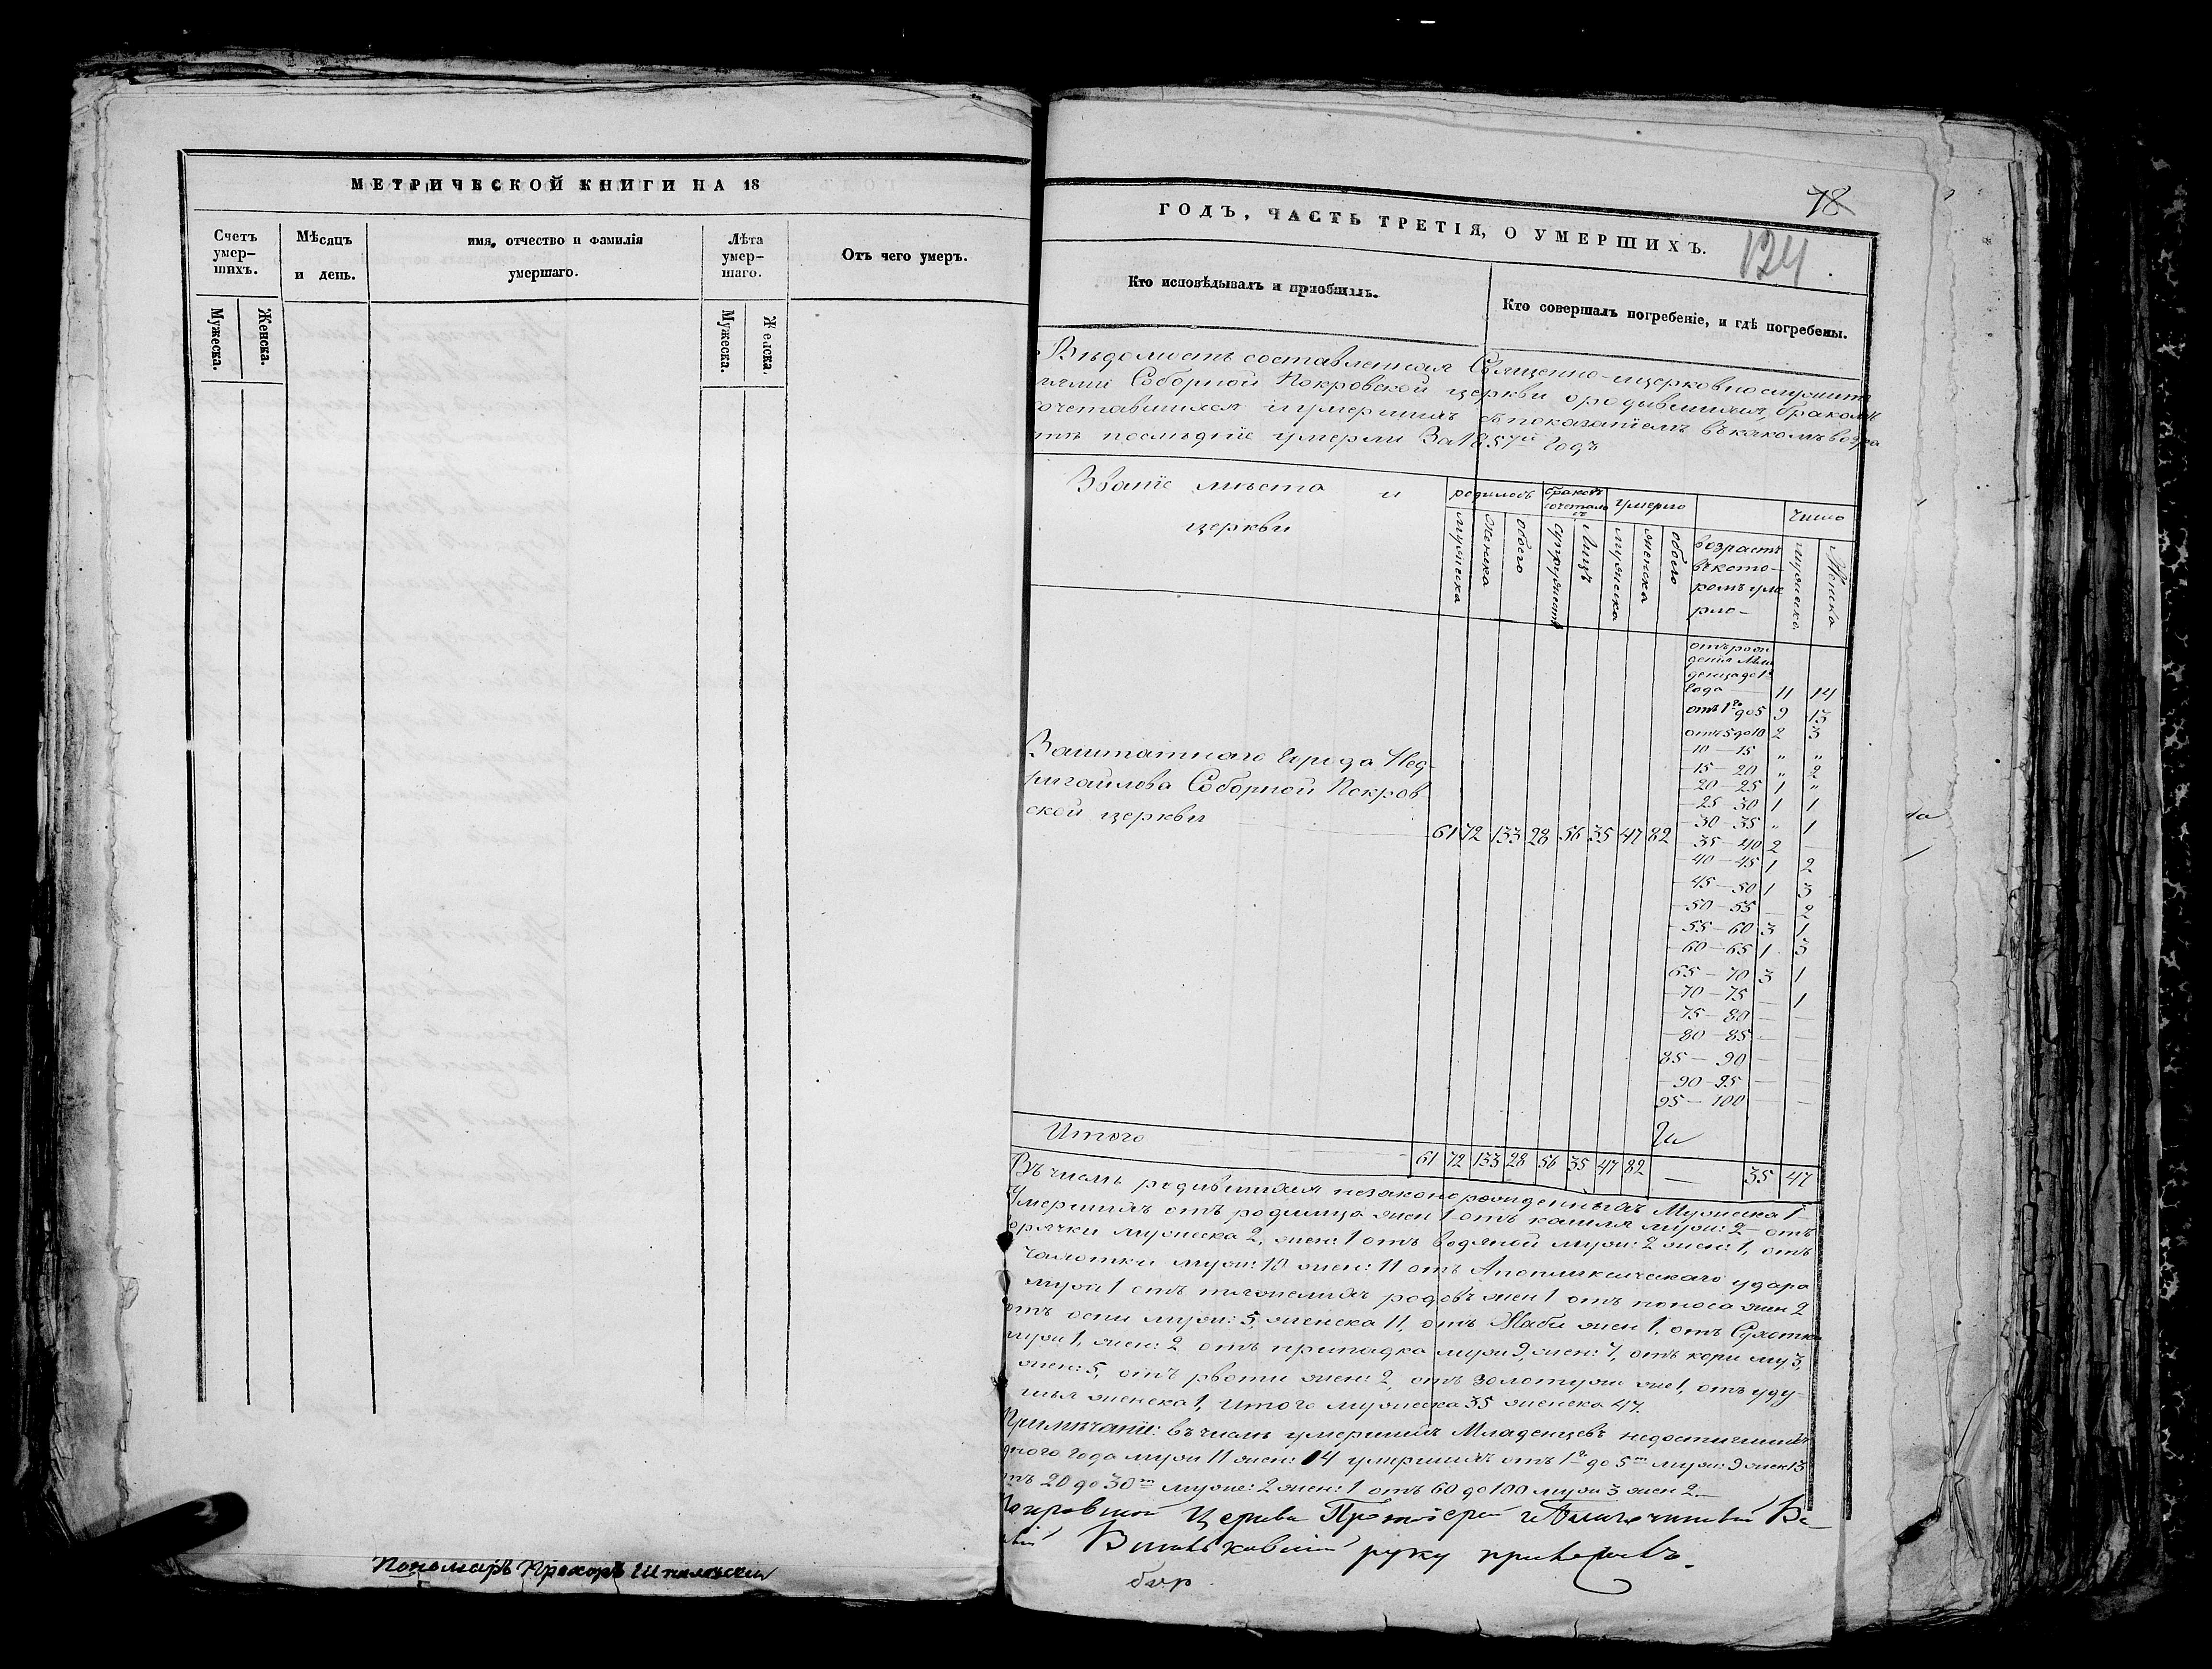 МЕТРИЧЕСКОЙ КНИГИ НА 18
Счетъ умер-шихъ.
Мужеска.
Женска.
Мѣсяцъ и день.
имя, отчество и фамилія умершаго.
Лѣта умер-шаго.
Мужеска.
Женска.
Отъ чего умеръ.
Пономарь Прохоръ
78
ГОДЪ, ЧАСТЬ ТРЕТІЯ, О УМЕРШИХЪ.
124
Кто исповѣдывалъ и пріобщалъ.
Кто совершалъ погребеніе, и гдѣ погребены.
Вѣдомость составленная Священно-церковнослужит
лями Соборной Покровской церкви о родившихся, бракомъ
сочетавшихся и умершихъ съ показаніемъ въ какомъ возра
стѣ послѣдніе умерли За 1857й Годъ
Званіе мѣста и
церкви
родилось
мужеска
женска
обоего
браковъ сочетало
супружествъ
Лицъ
умерло
мужеска
женска
обоего
возрастъ
въ кото-
ромъ уме
рло -
Число
мужеска
Женска
отъ рож
денія Мла
денца до 1
Года 11 14
отъ 1го до 5 9 13
отъ 5 до 10 2 3
10 - 15 " "
15 - 20 " 2
20 - 25 1 "
25 - 30 1 1
30 - 35 " 1
35 - 40 2 -
40 - 45 1 2
45 - 50 1 3
50 - 55 - 2
55 - 60 3 1
60 - 65 1 3
65 - 70 3 1
70 - 75 - 1
75 - 80 - -
80 - 85 - -
85 - 90 - -
90 - 95 - -
95 - 100 - -
Заштатнаго Города Нед-
ригайлова Соборной Покров
ской церкви 61 72 133 28 56 35 47 82
Итого 61 72 133 28 56 35 47 82 - 35 47
Въ числѣ родившихся незаконорожденныхъ Мужеска 1
Умершихъ отъ родимца жен 1 отъ кашля муж: 2 - отъ
горячки мужеска 2, жен: 1 отъ водяной муж: 2 жен: 1, отъ
чахотки муж: 10 жен: 11 отъ Апоплексическаго удара
муж 1 отъ тяжелыхъ родовъ жен 1 отъ поноса жен 2
отъ оспы муж: 5, женска 11, отъ Жабы жен 1, отъ Сухотки
муж 1, жен: 2 отъ припадка муж 9, жен: 7, отъ кори му 3,
жен: 5, отъ рвоты жен: 2, отъ золотухи же 1, отъ уду-
шья женска 1, Итого мужеска 35 женска 47.
Примѣчаніе: въ числѣ умершихъ Младенцевъ недостигшихъ
дного года муж 11 жен: 14 умершихъ отъ 1г до 5т муж: 9 жен 13
тъ 20 до 30т муже: 2 жен: 1 отъ 60 до 100 муж 3 жен 2.
Покровской Церкви Протоіерей и Благочинный Ва-
руку приложилъ.